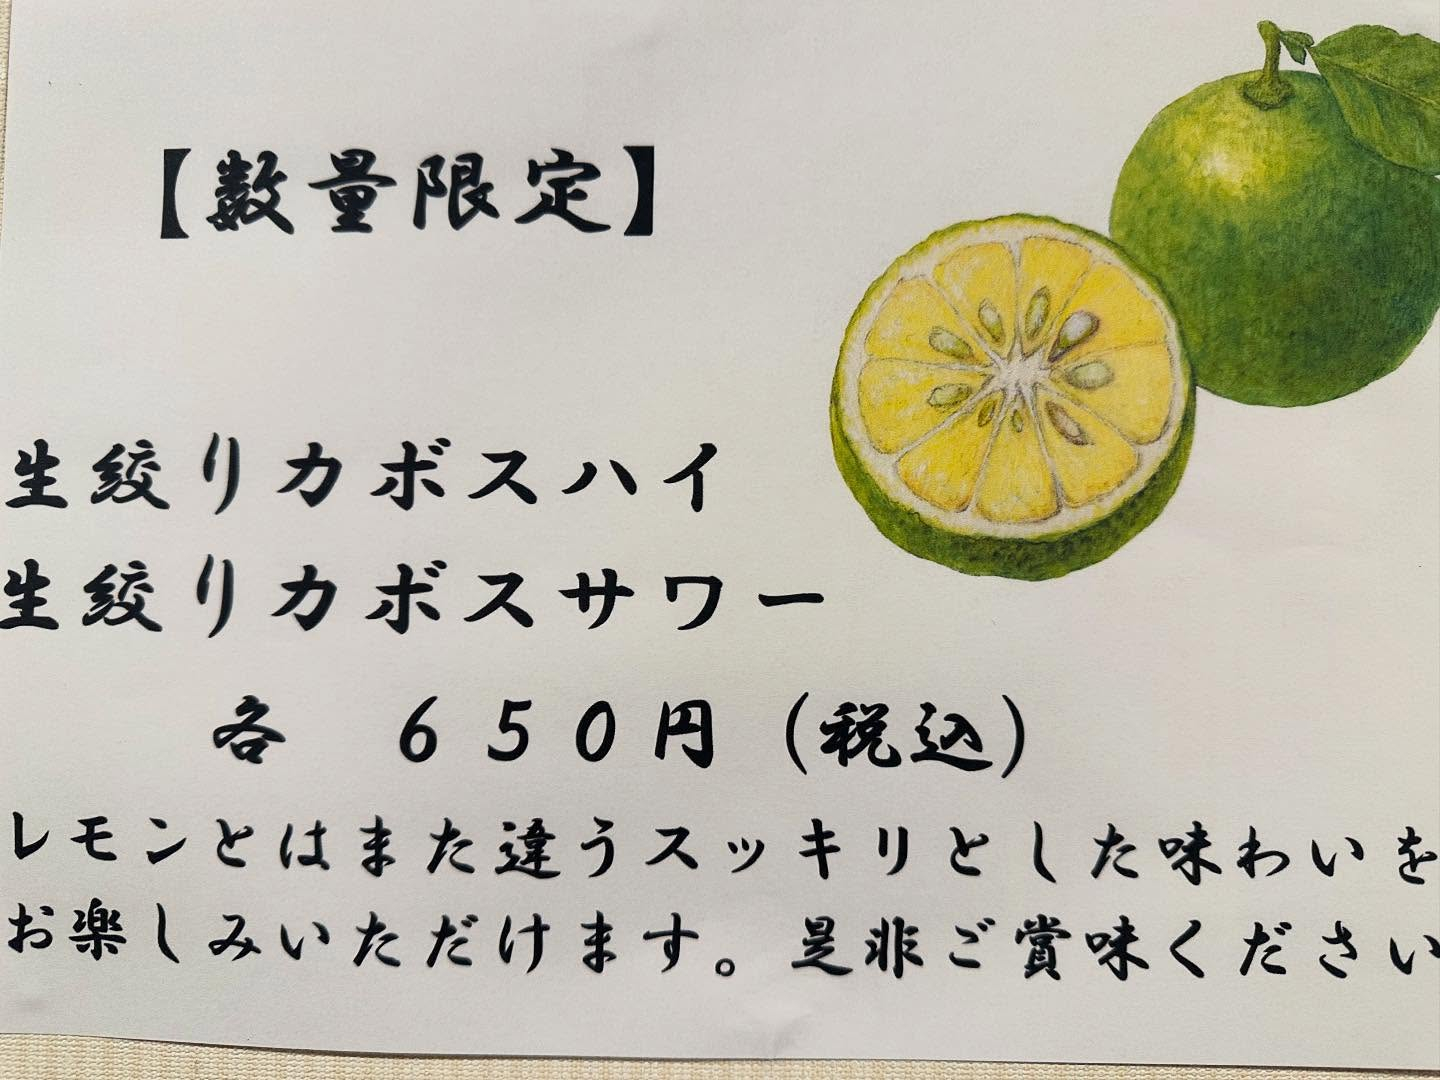 【数量限定】
生絞りカボスハイ
生絞りカボスサワー
各　６５０円（税込）
レモンとはまた違うスッキリとした味わいを
お楽しみいただけます。是非ご賞味ください